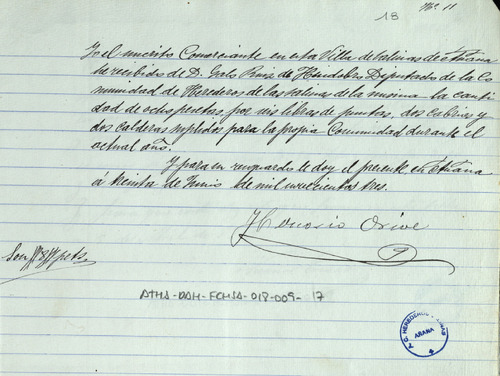 Nº. 11
18
Yo el inscrito Comerciante en esta Villa de Salinas de Añana
he recibido de D. Galo Ruiz de Mendobro Diputado de la Co
munidad de Herederos de las Salinas de la misma la canti
dad de ocho pesetas, por seis libras de puntas, dos cabrias y
dos calderas suplidos para la propia Comunidad durante el
actual año.
Y para su resguardo le doy el presente en Añana
á treinta de Junio de mil novecientos tres.
Honorio Orive
Son #8# pets.
ATHA-DAH-FCHSA-018-009-17
HEREDEROS
AÑANA